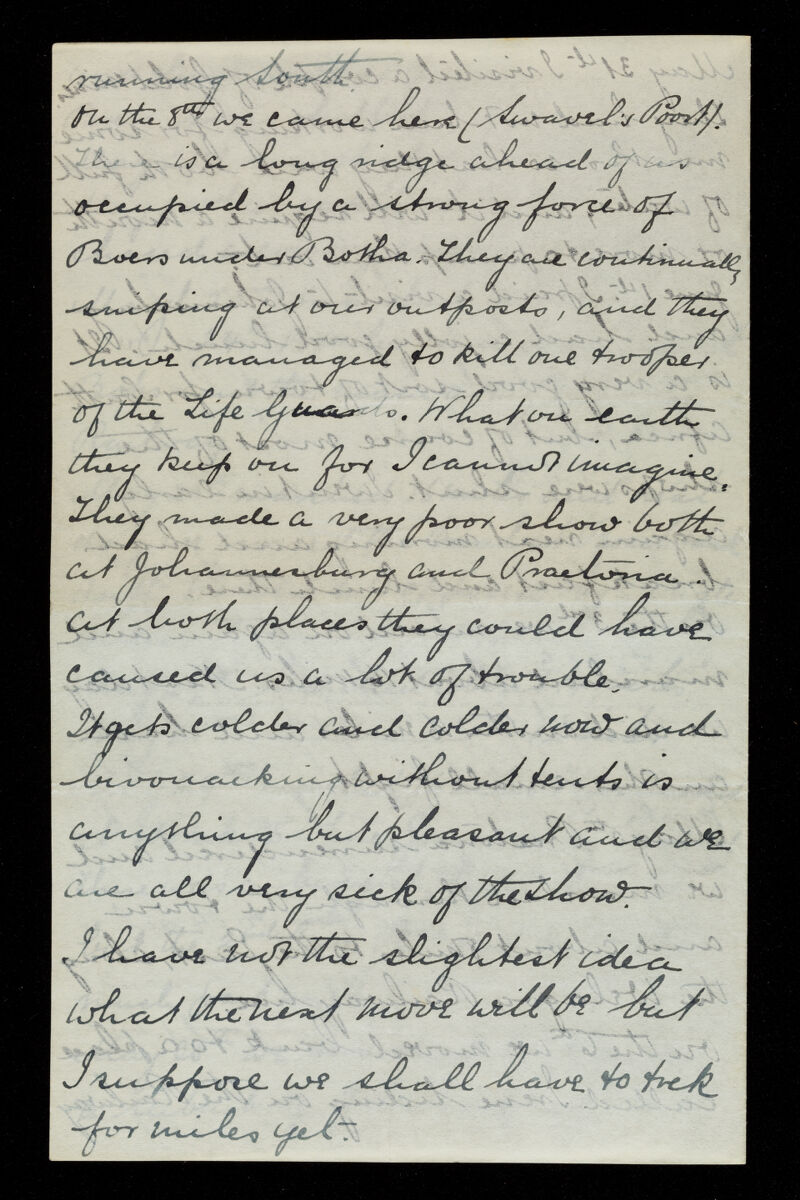 running South.
On the 8th we came here (Swavel's Poort).
There is a long ridge ahead of us
occupied by a strong force of
Boers under Botha. They are continually
sniping at our outposts, and they
have managed to kill one trooper
of the Life Guards. What on earth
they keep on for I cannot imagine.
They made a very poor show both
at Johannesburg and Praetoria.
At both places they could have
caused us a lot of trouble.
It gets colder and colder now and
bivouacking without tents is
anything but pleasant and we
are all very sick of the show.
I have not the slightest idea
what the next move will be but
I suppose we shall have to trek
for miles yet.